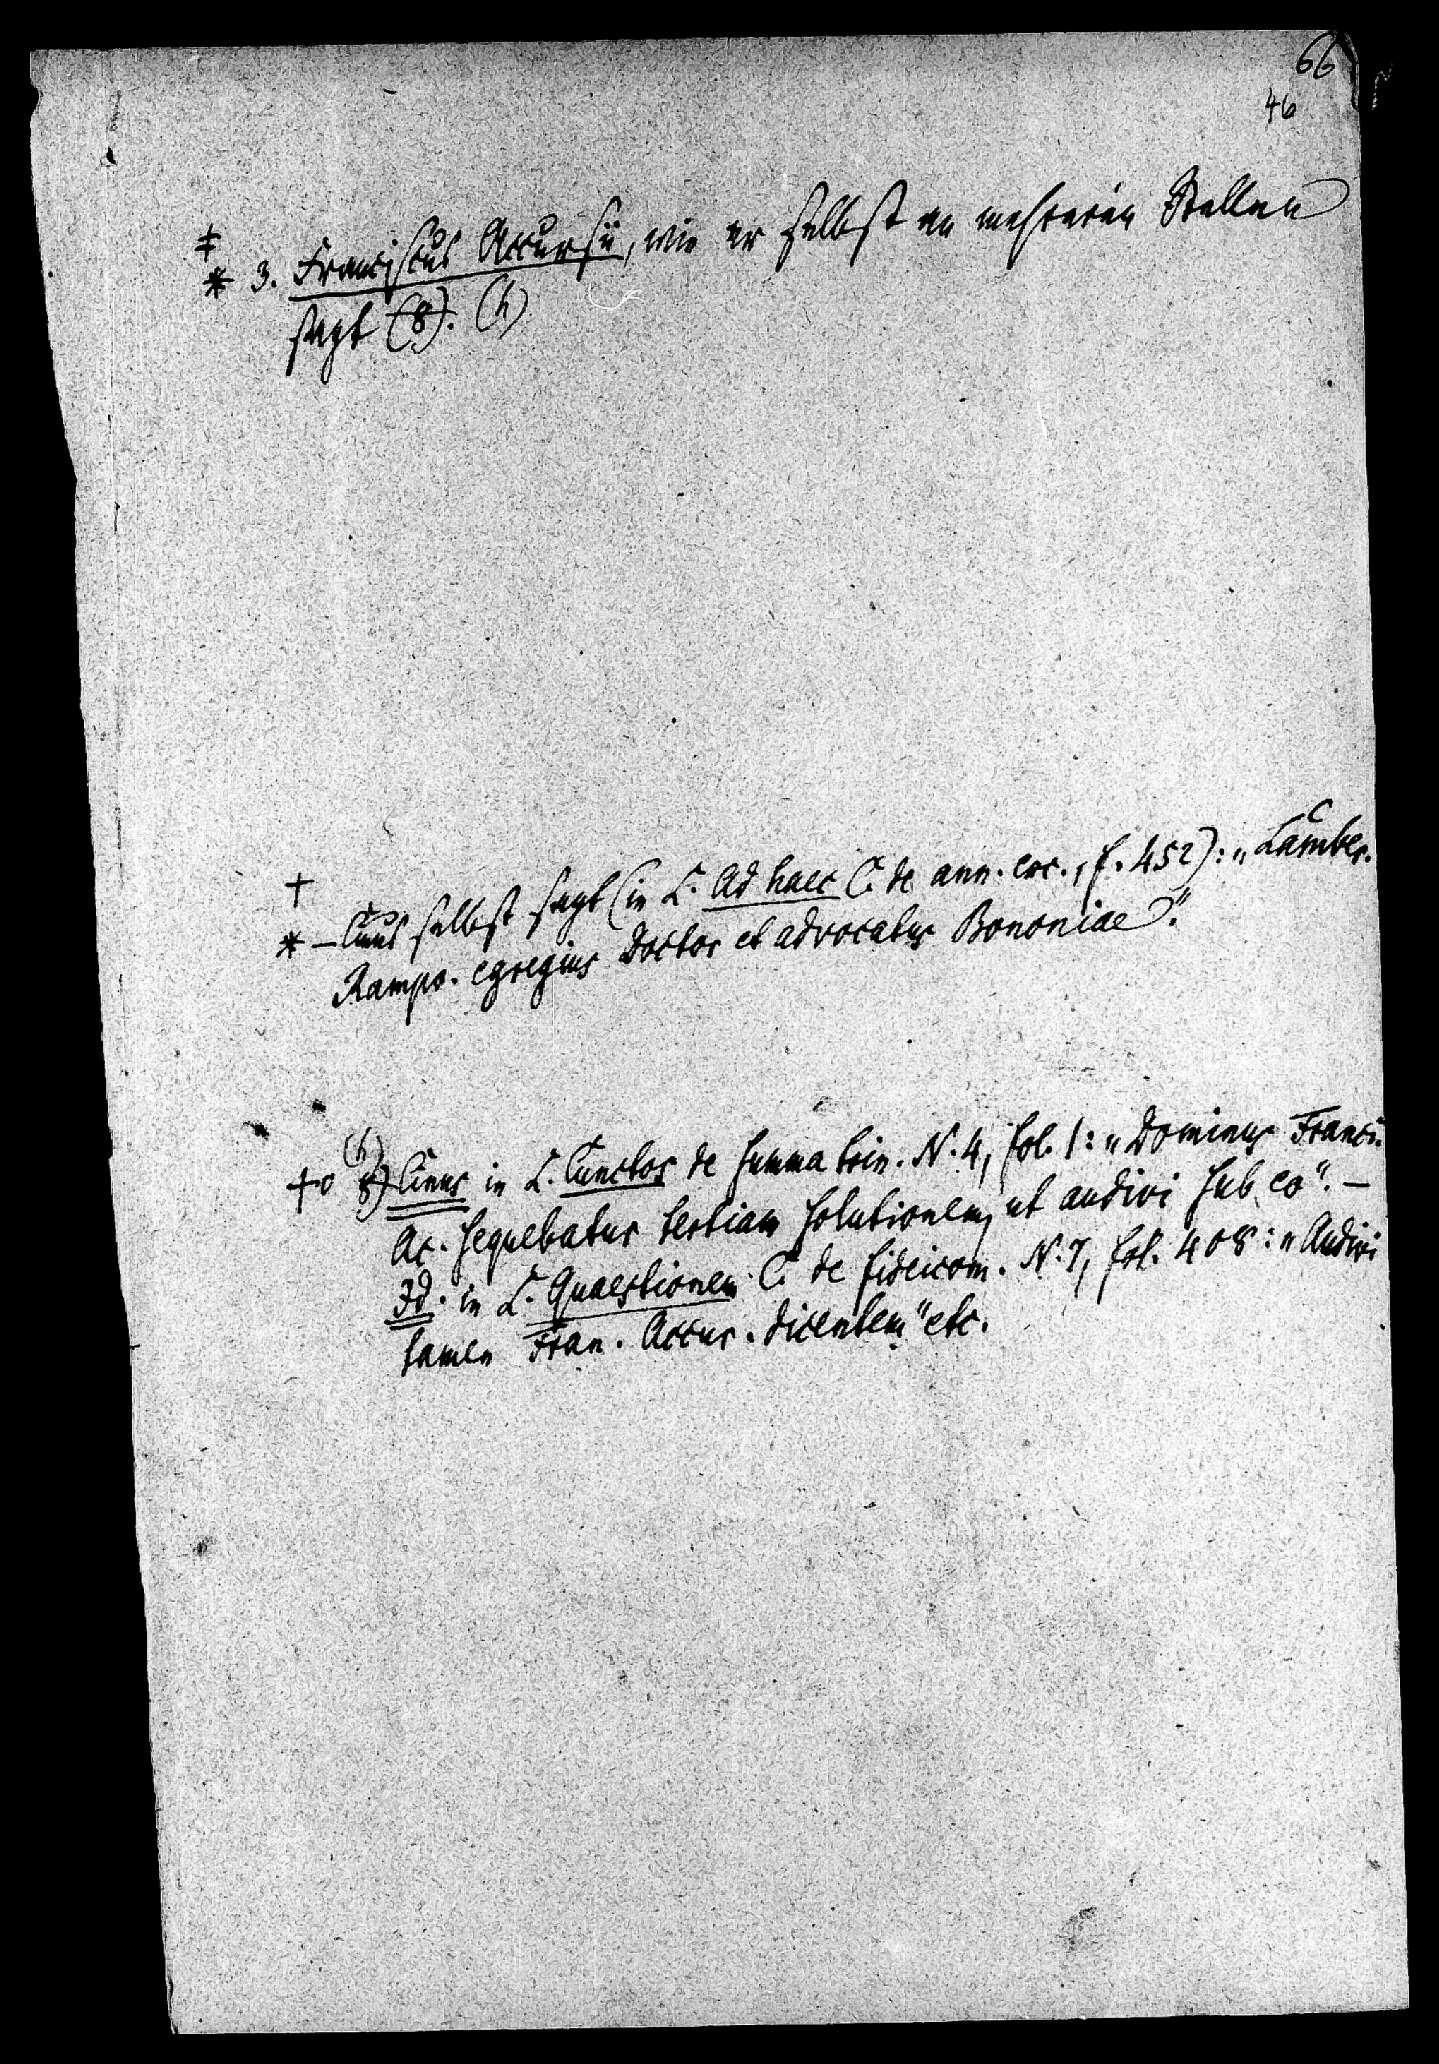 66
46
‡
* 3. Franciscus Accursii, wie er selbst an mehreren Stellen
sagt (8). (h)
†
* – Cinus selbst sagt (in L. Ad haec C. de ann. exc., f. 452): „Lamber.
Rampo. egregius Doctor et advocatus Bononiae“.
(h)
+o 8) Cinus in L. Cunctos de summa trin. N. 4, fol. 1: „Dominus Franci.
Ac. sequebatur tertiam solutionem, ut audivi sub eo“. –
Id. in L. Quaestionem C. de fideicom. N. 7, fol. 408: „Audivi
tamen Fran. Accur. dicentem“ etc.